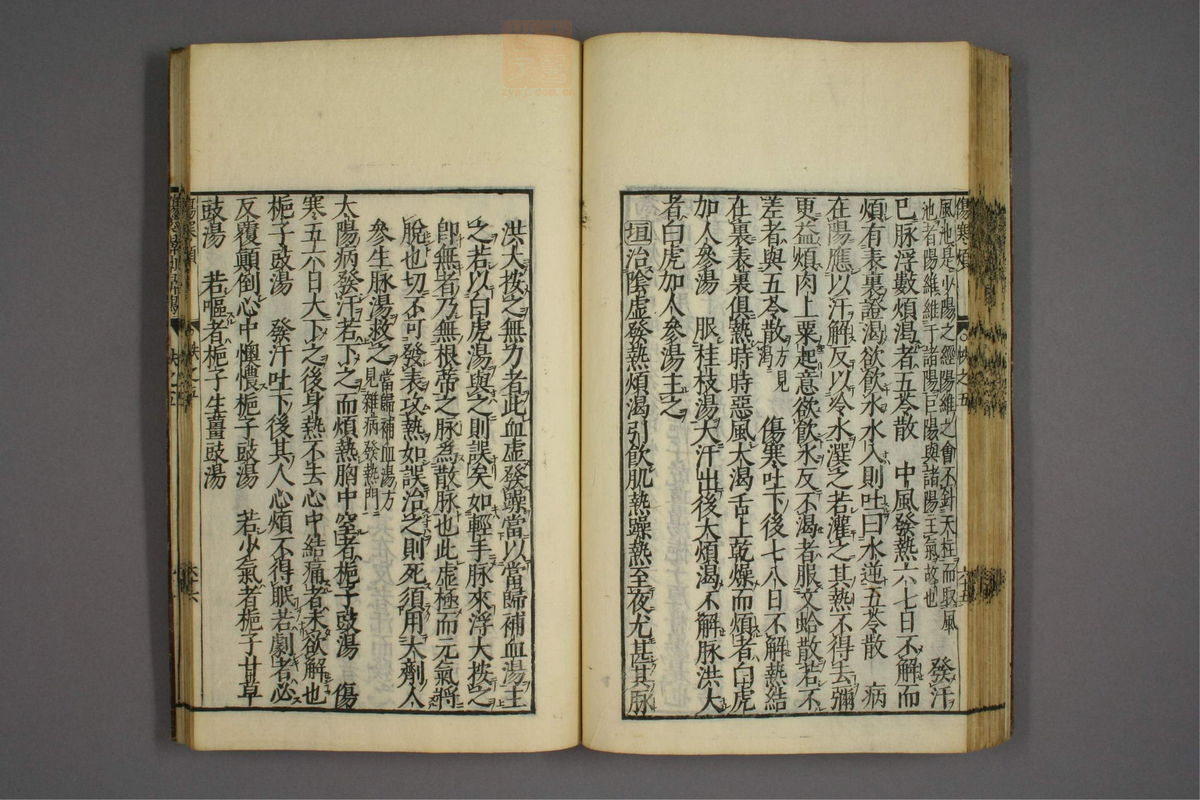 風池是少陽之經陽維之會不針天柱而取風
池者陽維維于諸陽巨陽與諸陽主氣故也 發汗
已脉浮數煩渴者五苓散 中風發熱六七日不解而
煩有表裏證渴欲飲水水入則吐曰水逆五苓散 病
在陽應以汗解反以冷水潠之若灌之其熱不得去彌
更益煩肉上粟起意欲飲水反不渴者服文蛤散若不
差者與五苓散方見渴 傷寒吐下後七八日不解熱結
在裏表裏俱熱時時惡風大渴舌上乾燥而煩者白虎
加人參湯 服桂枝湯大汗出後大煩渴不解脉洪大
者白虎加人參湯主之
垣治陰虛發熱煩渴引飲肌熱躁熱至夜尤甚其脉
洪大按之無力者此血虛發躁當以當歸補血湯主
之若以白虎湯與之則誤矣如輕手脉來浮大按之
卽無者乃無根蔕之脉爲散脉也此虛極而元氣將
脫也切不可發表攻熱如誤治之則死須用大劑人
參生脉湯救之當歸補血湯方見雜病發熱門
太陽病發汗若下之而煩熱胸中窒者梔子豉湯 傷
寒五六日大下之後身熱不去心中結痛者未欲解也
梔子豉湯 發汗吐下後其人心煩不得眠若劇者必
反覆顛倒心中懊憹梔子豉湯 若少氣者梔子甘草
豉湯 若嘔者梔子生薑豉湯
傷寒煩